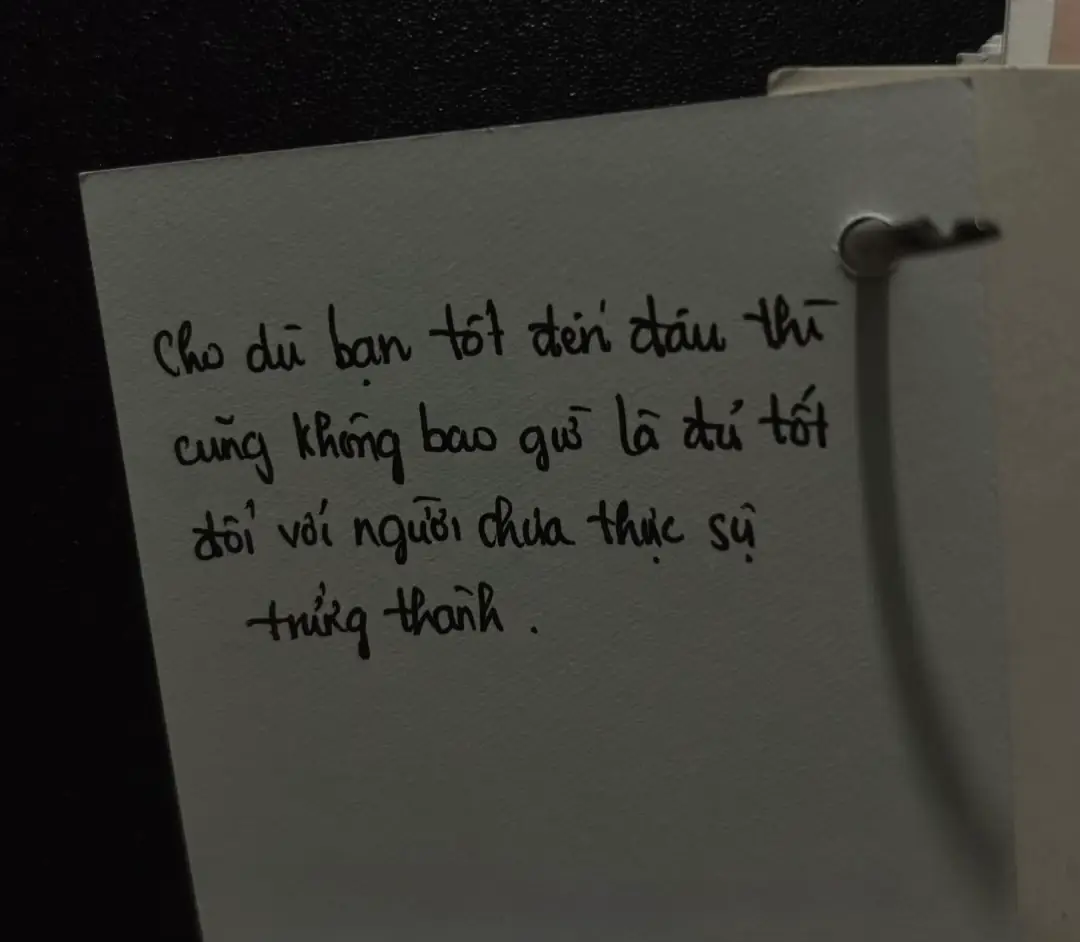 Cho dù bạn tốt đến đâu thì
cũng không bao giờ là đủ tốt
đối với người chưa thực sự
trưởng thành.